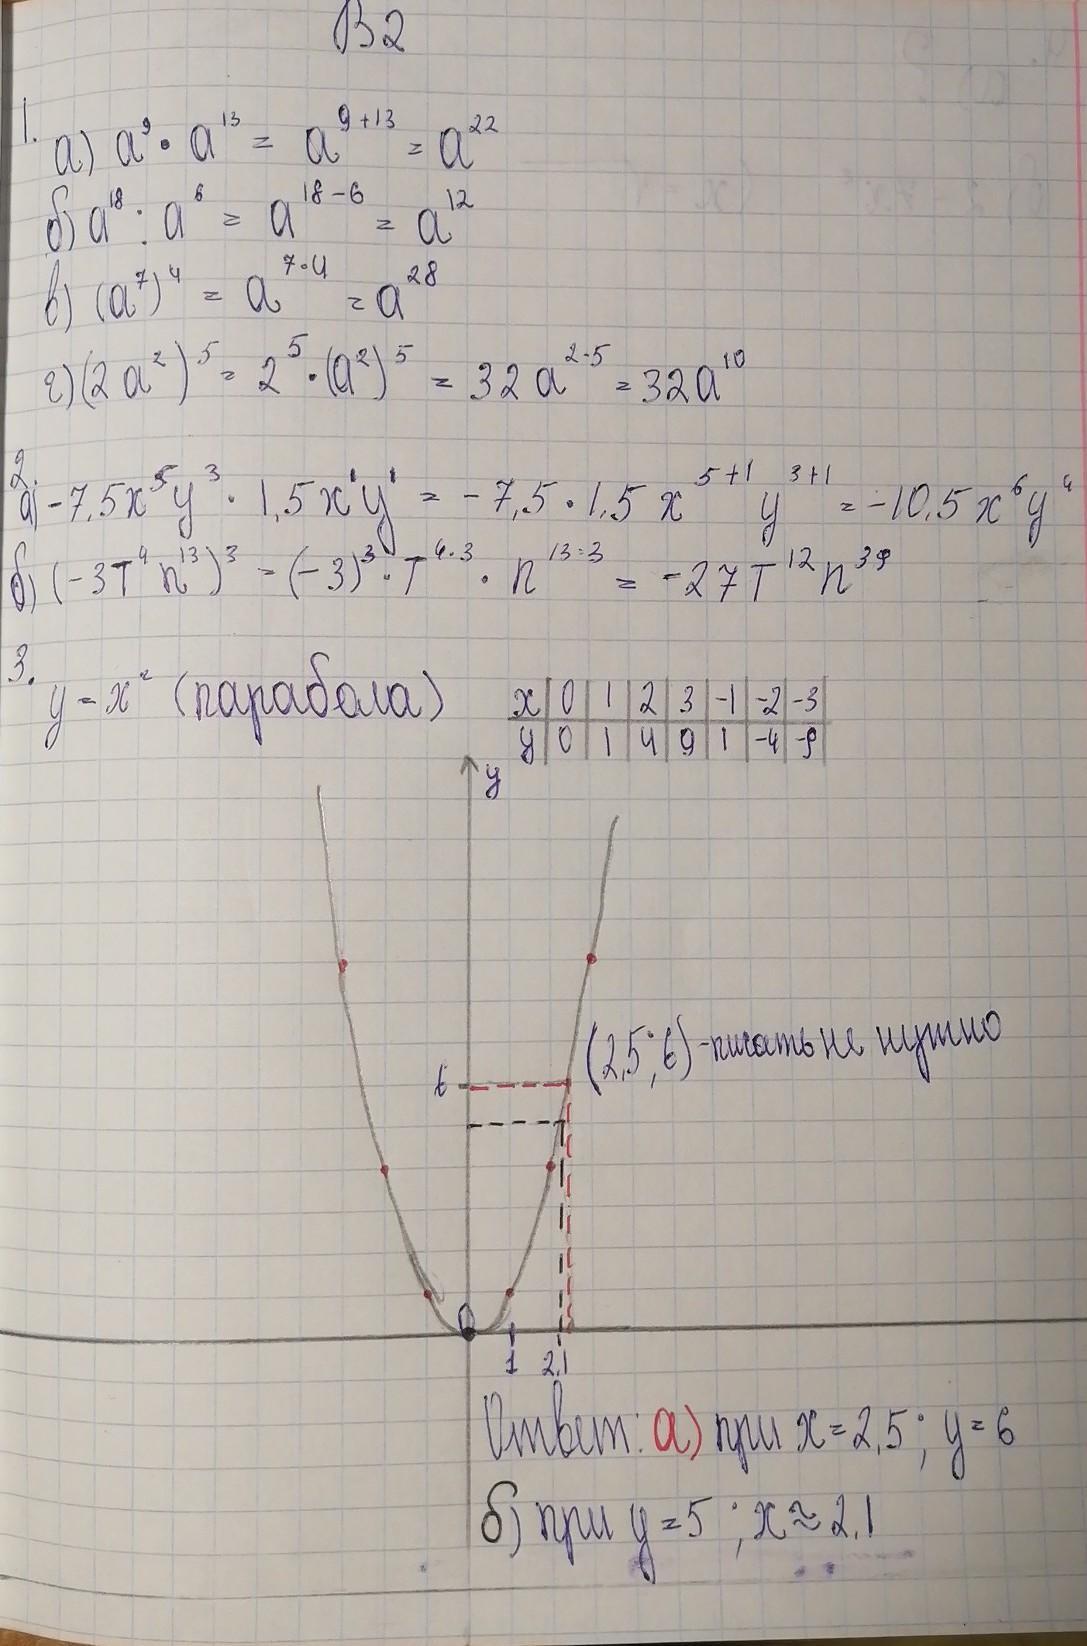 В2
1.
а) a⁹ • a¹³ = a⁹⁺¹³ = a²²
б) a¹⁸ : a⁶ = a¹⁸⁻⁶ = a¹²
в) (a⁷)⁴ = a⁷˙⁴ = a²⁸
г) (2a²)⁵ = 2⁵ • (a²)⁵ = 32a²˙⁵ = 32a¹⁰
2.
а) -7,5x⁵y³ · 1,5x¹y¹ = -7,5 • 1,5 x⁵⁺¹ y³⁺¹ = -10,5x⁶y⁴
б) (-3т⁴n¹³)³ = (-3)³ • т⁴˙³ • n¹³˙³ = -27т¹²n³⁹
3.
y = x² (парабола)
x | 0 | 1 | 2 | 3 | -1 | -2 | -3
y | 0 | 1 | 4 | 9 | 1 | -4 | -9
y
(2,5; 6) - писать не нужно
6
0
1 2,1
Ответ: а) при x = 2,5 ; y = 6
б) при y = 5 ; x ≈ 2,1